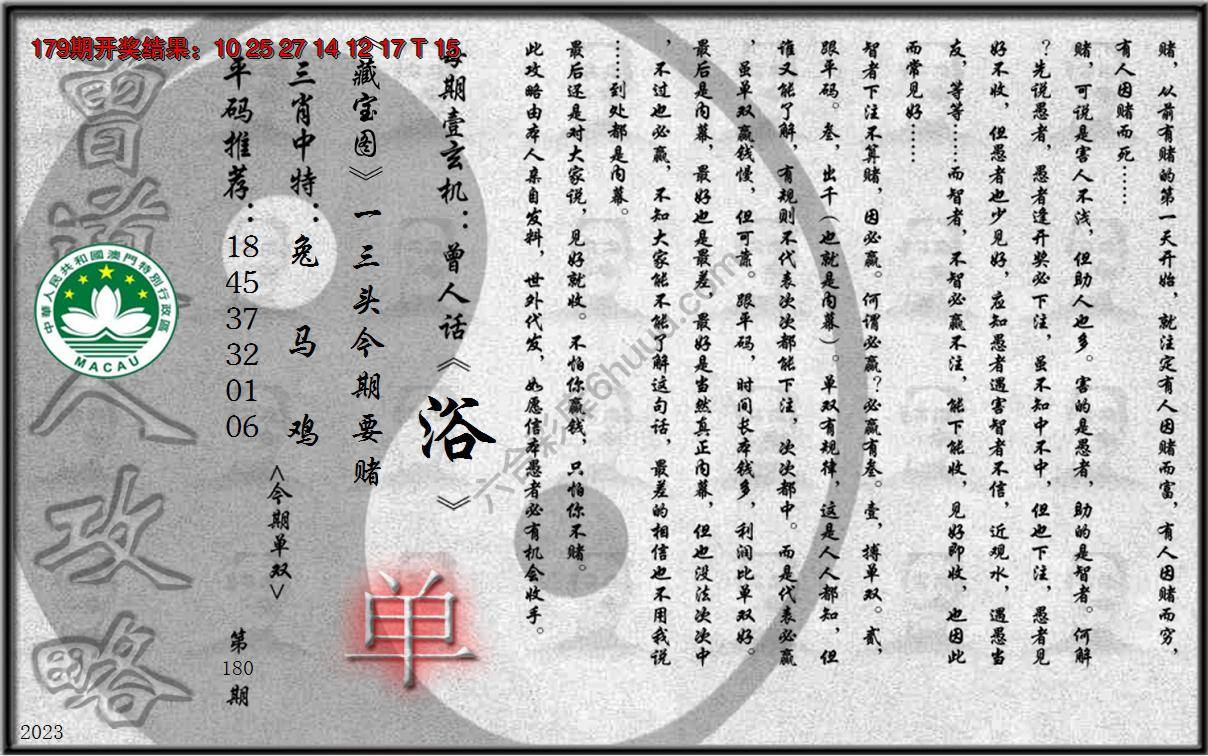 179期开奖结果：10 25 27 14 12 17 T 15
赌，从前有赌的第一天开始，就注定有人因赌而富，有人因赌而穷，
有人因赌而死……
赌，可说是害人不浅，但助人也多。害的是愚者，助的是智者。何解
？先说愚者，愚者逢开奖必下注，虽不知中不中，但也下注，愚者见
好不收，但愚者也少见好，应知愚者遇害智者不信，近观水，遇愚当
友，等等……而智者，不智必赢不注，能下能收，见好即收，也因此
而常见好……
智者下注不算赌，因必赢。何谓必赢？必赢有叁。壹，搏单双。贰，
跟平码。叁，出千（也就是内幕）。单双有规律，这是人人都知，但
谁又能了解，有规则不代表次次都能下注，次次都中。而是代表必赢
，虽单双赢钱慢，但可靠。跟平码，时间长本钱多，利润比单双好。
最后是内幕，最好也是最差，最好是当然真正内幕，但也没法次次中
，不过也必赢，不知大家能不能了解这句话，最差的相信也不用我说
……到处都是内幕。
最后还是对大家说，见好就收。不怕你赢钱，只怕你不赌。
此攻略由本人亲自发料，世外代发，如愿信本愚者必有机会收手。
每期壹玄机：曾人话《浴》
《藏宝图》一三头今期要赌
单
三肖中特：兔 马 鸡
<今期单双>
平码推荐：
18
45
37
32
01
06
第
180
期
曾道人攻略
中華人民共和國澳門特別行政區
MACAU
六合彩库6huuu.com
2023